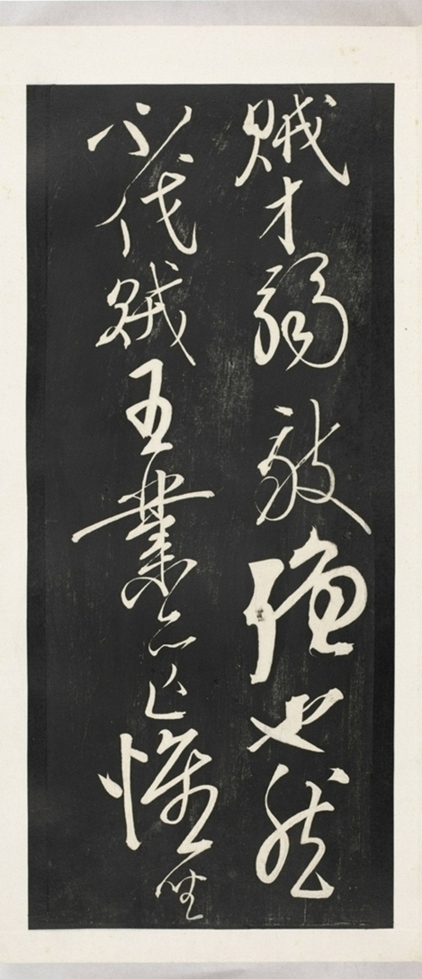 賊才弱敵強也然
不伐賊王業亦亡惟坐